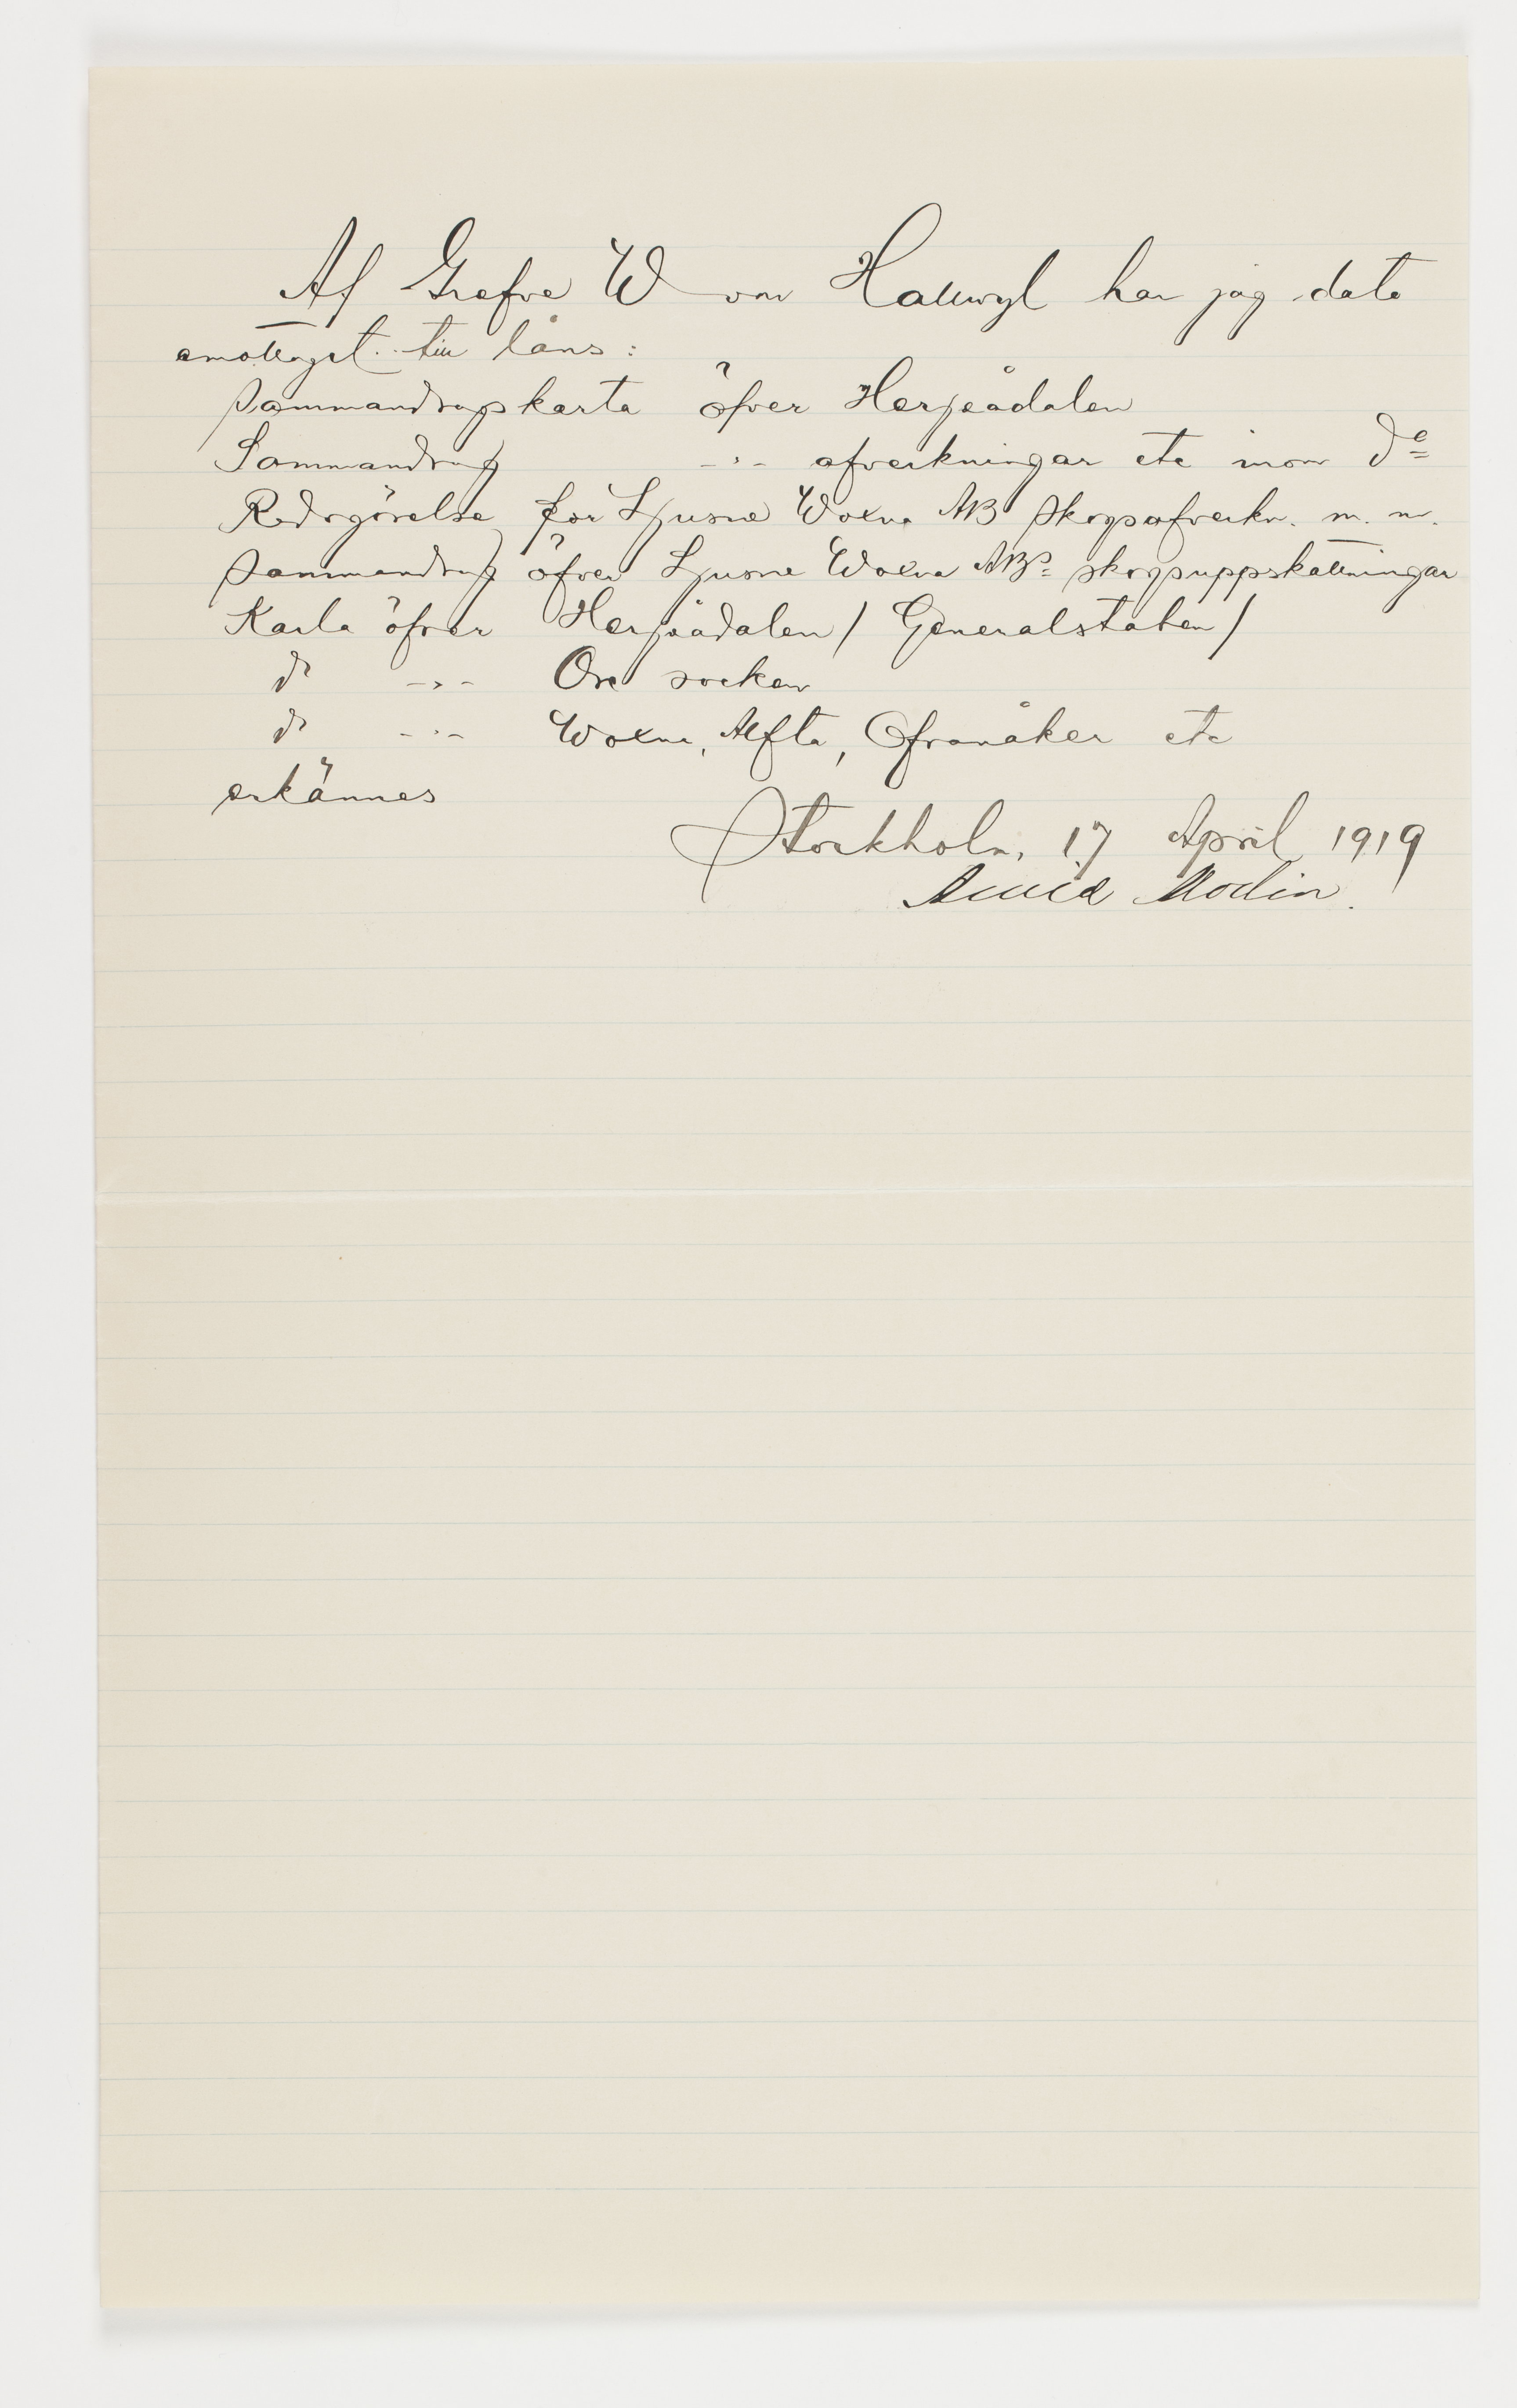 Af Grefve W von Hallwyl har jag dato
emottaget till låns:
Sammandragskarta öfver Herjeådalen
Sammandrag -"- afverkningar etc inom do
Redogörelse för Ljusne Woxna AB skogsafverkn. m. m.
Sammandrag öfver Ljusne Woxna ABs skogsuppskattningar
Karta öfver Herjeådalen / Generalstaben /
do -"- Ore socken
do -"- Woxna, Alfta, Ofvanåker etc
erkännes
Stockholm, 17 April 1919
Modin.